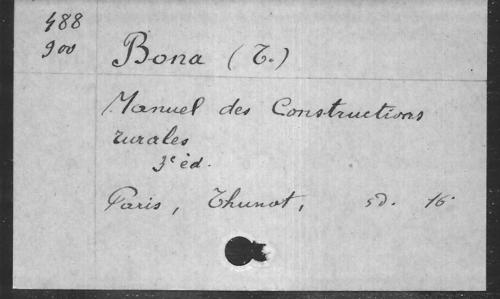 488
900
Bona (T.)
Manuel des Constructions
rurales
3e éd.
Paris, Thunot, sd. 16°